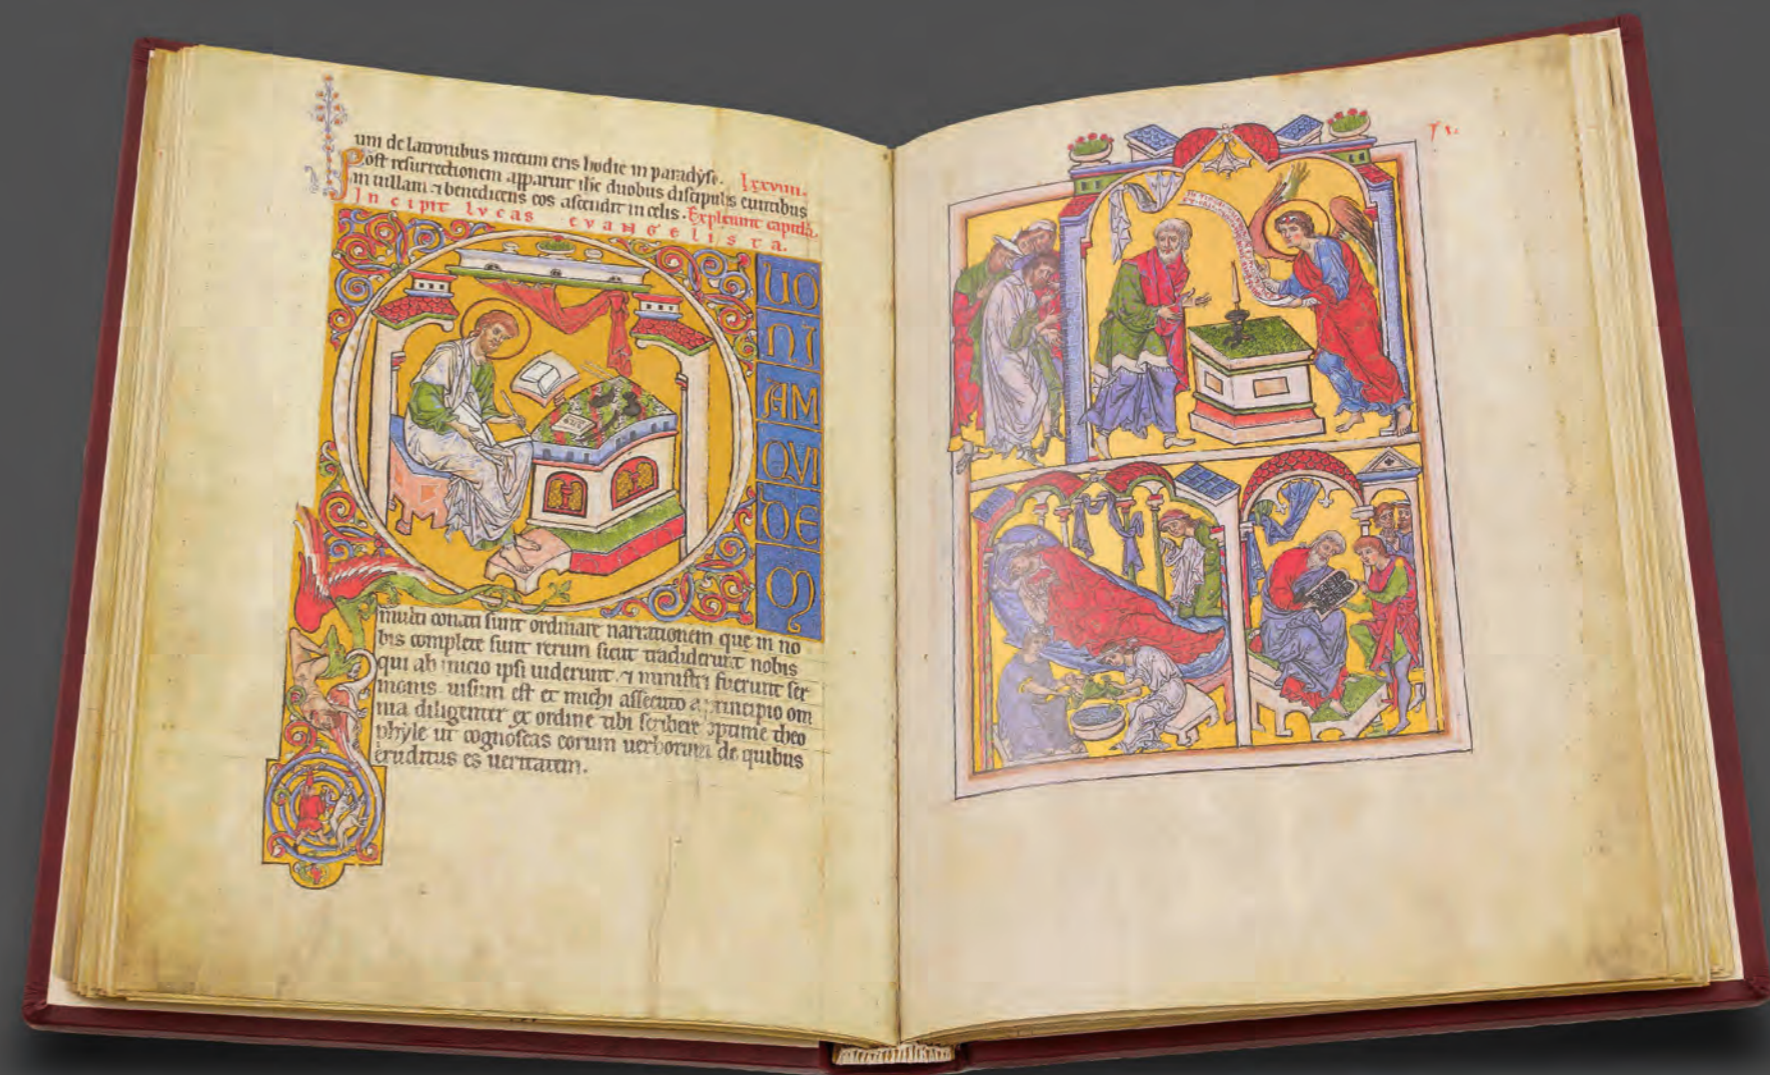 um de latronibus mecum eris hodie in paradyso.
Post resurrectionem apparuit ihc duobus discipulis euntibus Lxxviiii.
in uillam ⁊ benedicens eos ascendit in celis. Expliciunt capitula.
Incipit lvcas
evangelista.
UO
NI
AM
QVI
DE
M
multi conati sunt ordinare narrationem que in no
bis complete sunt rerum sicut tradiderunt nobis
qui ab inicio ipsi uiderunt. ⁊ ministri fuerunt ser
monis. uisum est et michi assecuto a principio om
nia diligenter ex ordine tibi scribere optime theo
phyle ut cognoscas eorum uerborum de quibus
eruditus es ueritatem.